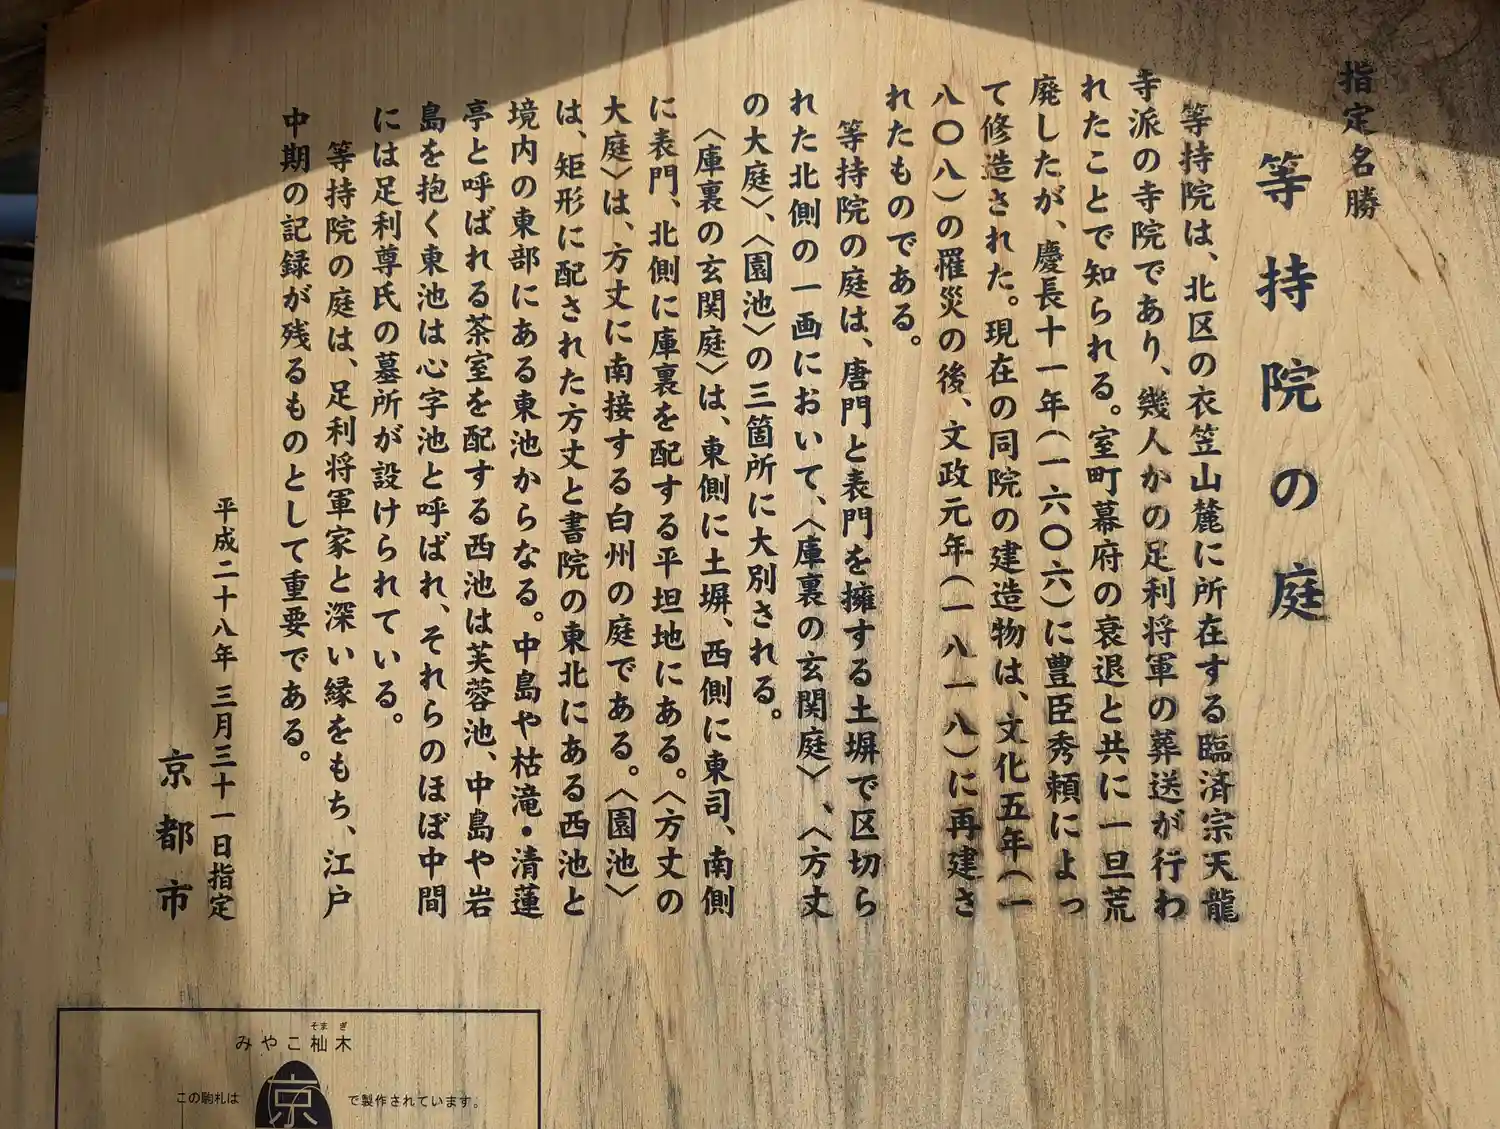 指定名勝
等持院の庭
等持院は、北区の衣笠山麓に所在する臨済宗天龍
寺派の寺院であり、幾人かの足利将軍の葬送が行わ
れたことで知られる。室町幕府の衰退と共に一旦荒
廃したが、慶長十一年(一六〇六)に豊臣秀頼によっ
て修造された。現在の同院の建造物は、文化五年(一
八〇八)の罹災の後、文政元年(一八一八)に再建さ
れたものである。
等持院の庭は、唐門と表門を擁する土塀で区切ら
れた北側の一画において、〈庫裏の玄関庭〉、〈方丈
の大庭〉、〈園池〉の三箇所に大別される。
〈庫裏の玄関庭〉は、東側に土塀、西側に東司、南側
に表門、北側に庫裏を配する平坦地にある。〈方丈の
大庭〉は、方丈に南接する白州の庭である。〈園池〉
は、矩形に配された方丈と書院の東北にある西池と
境内の東部にある東池からなる。中島や枯滝・清蓮
亭と呼ばれる茶室を配する西池は芙蓉池、中島や岩
島を抱く東池は心字池と呼ばれ、それらのほぼ中間
には足利尊氏の墓所が設けられている。
等持院の庭は、足利将軍家と深い縁をもち、江戸
中期の記録が残るものとして重要である。
平成二十八年三月三十一日指定
京都市
みやこ杣木
そまぎ
この駒札は
京
で製作されています。